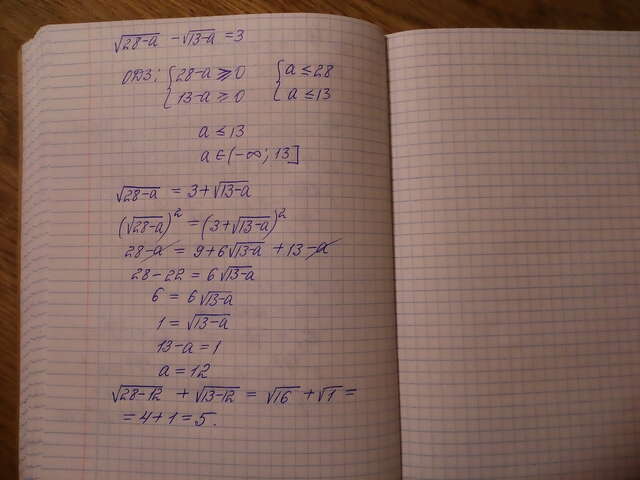 √28-a - √13-a = 3
ОДЗ: { 28-a ⩾ 0 { a ≤ 28
13-a ≥ 0 a ≤ 13
a ≤ 13
a ∈ (-∞; 13]
√28-a = 3+√13-a
(√28-a)² = (3+√13-a)²
28-a = 9+6√13-a +13-a
28-22 = 6√13-a
6 = 6√13-a
1 = √13-a
13-a = 1
a = 12
√28-12 + √13-12 = √16 + √1 =
= 4+1 = 5.